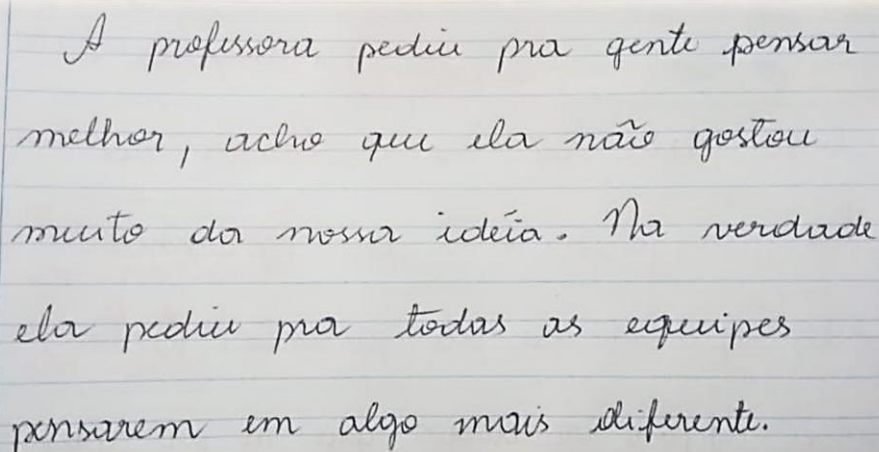 A professora pediu pra gente pensar
melhor, acho que ela não gostou
muito da nossa idéia. Na verdade
ela pediu pra todas as equipes
pensarem em algo mais diferente.